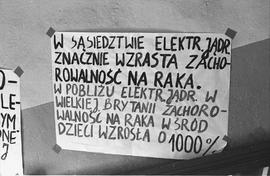 W SĄSIEDZTWIE ELEKTR. JĄDR
ZNACZNIE WZRASTA ZACHO-
ROWALNOŚĆ NA RAKA.
W POBLIŻU ELEKTR. JĄDR. W
WIELKIEJ BRYTANII ZACHORO-
WALNOŚĆ NA RAKA WŚRÓD
DZIECI WZROSŁA O 1000%
O-
LE-
YM
NEJ